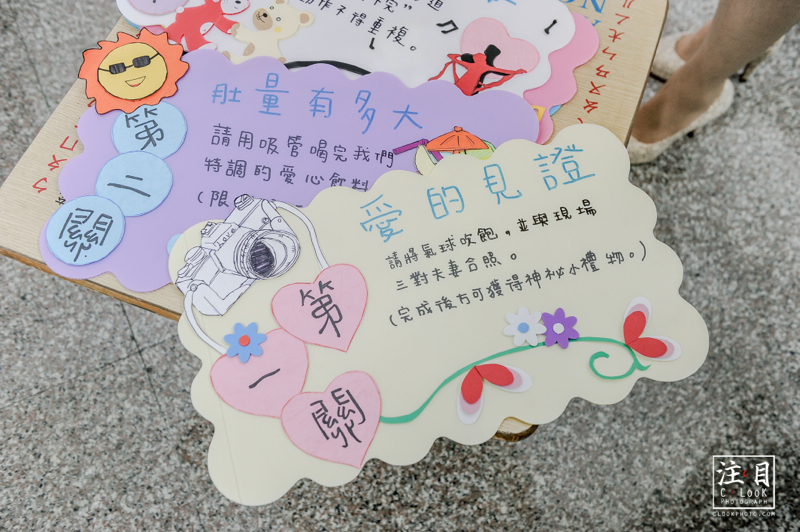 動作不得重複。
肚量有多大
第二關
請用吸管喝完我們
特調的愛心飲料
(限
愛的見證
第一關
請將氣球吹飽，並與現場
三對夫妻合照。
(完成後方可獲得神祕小禮物。)
注目
C LOOK
PHOTOGRAPH
CLOOKPHOTO.COM